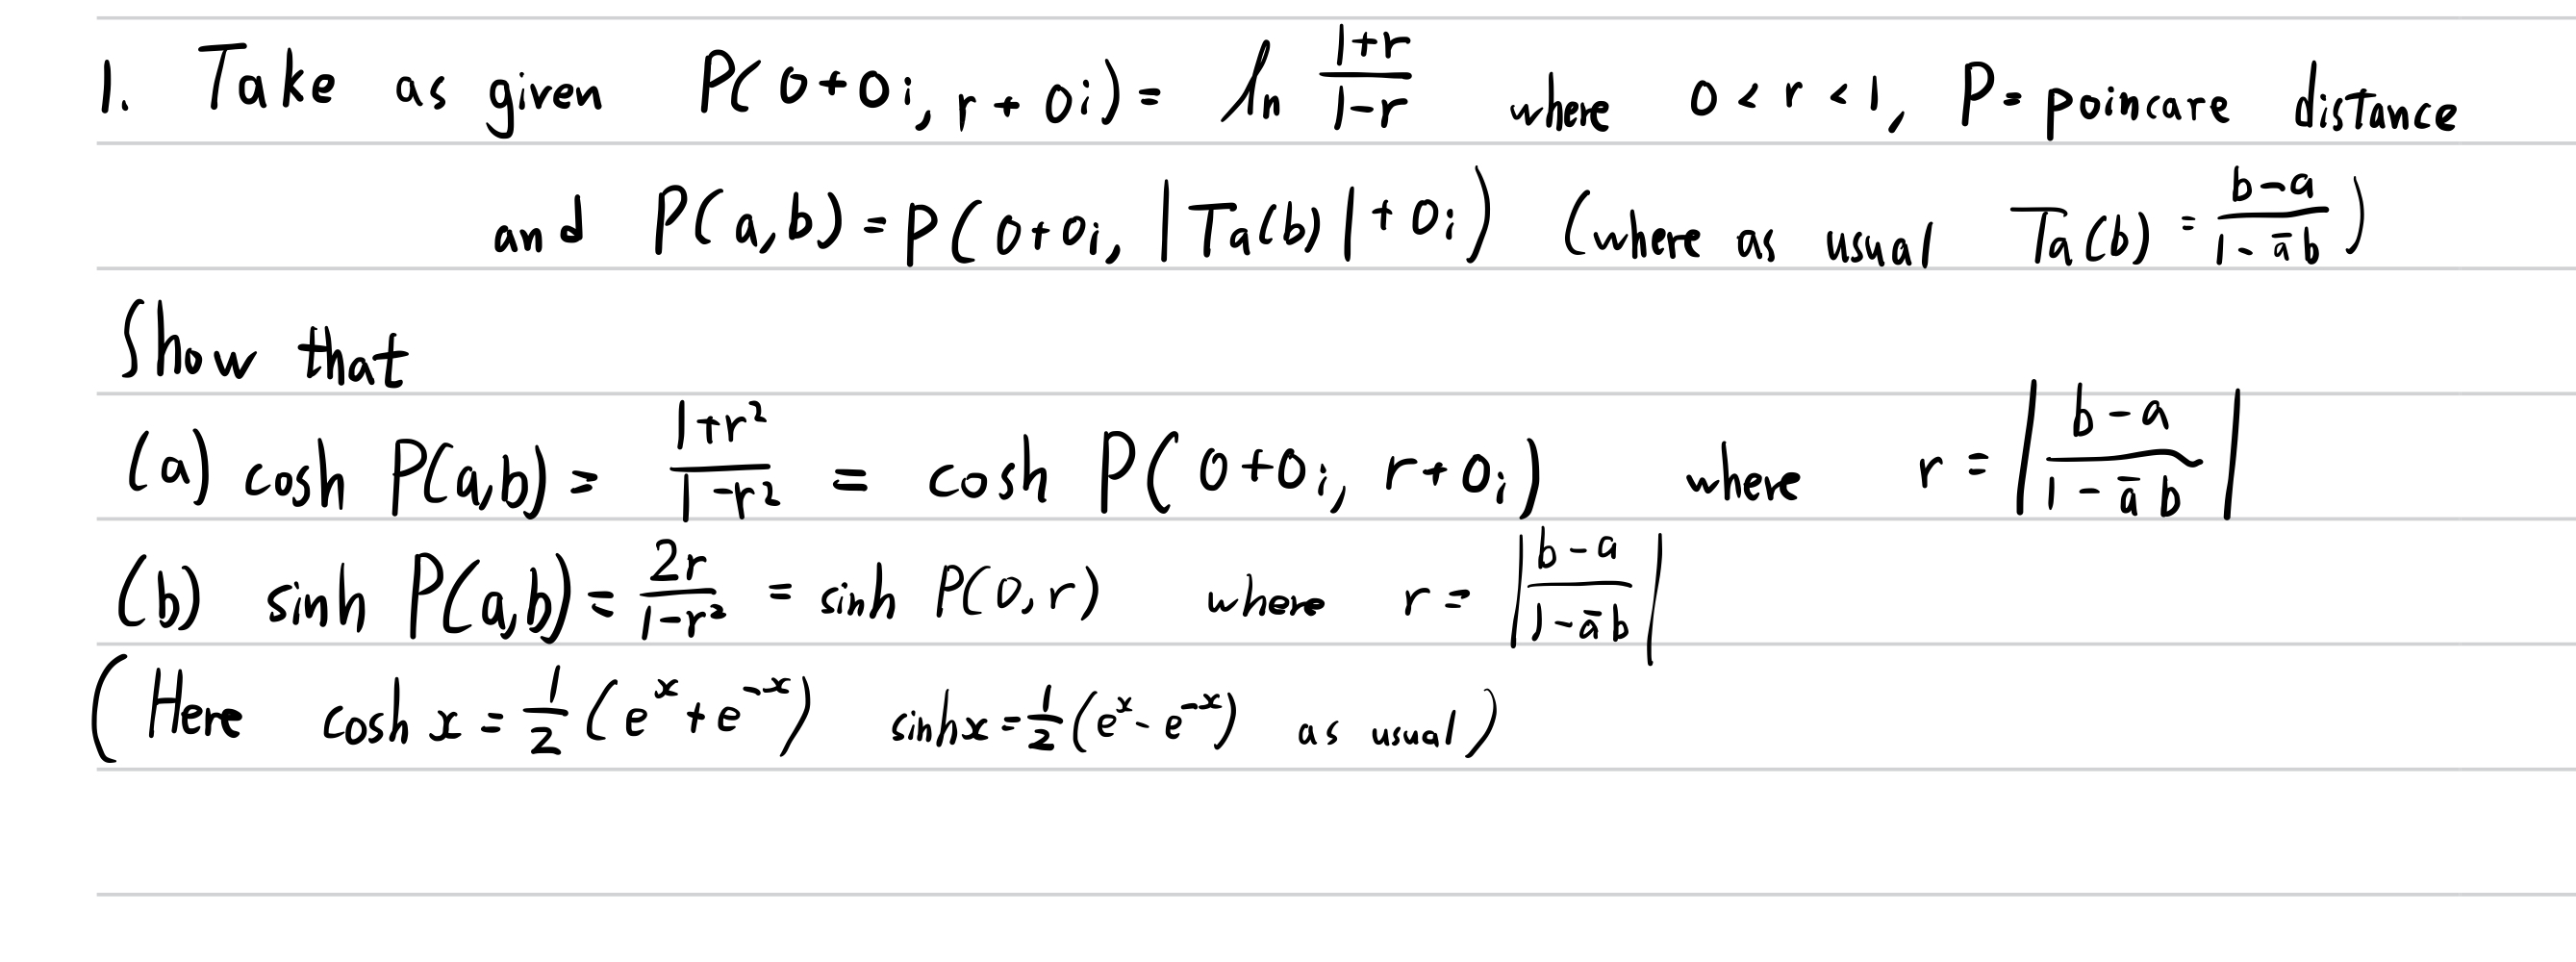 1. Take as given P(0+0i, r+0i) = ln \frac{1+r}{1-r} where 0 < r < 1, P = poincare distance
and P(a,b) = P(0+0i, |Ta(b)| + 0i) (where as usual Ta(b) = \frac{b-a}{1-\bar{a}b})
Show that
(a) cosh P(a,b) = \frac{1+r^2}{1-r^2} = cosh P(0+0i, r+0i) where r = |\frac{b-a}{1-\bar{a}b}|
(b) sinh P(a,b) = \frac{2r}{1-r^2} = sinh P(0,r) where r = |\frac{b-a}{1-\bar{a}b}|
(Here cosh x = \frac{1}{2}(e^x + e^{-x}) sinhx = \frac{1}{2}(e^x - e^{-x}) as usual)